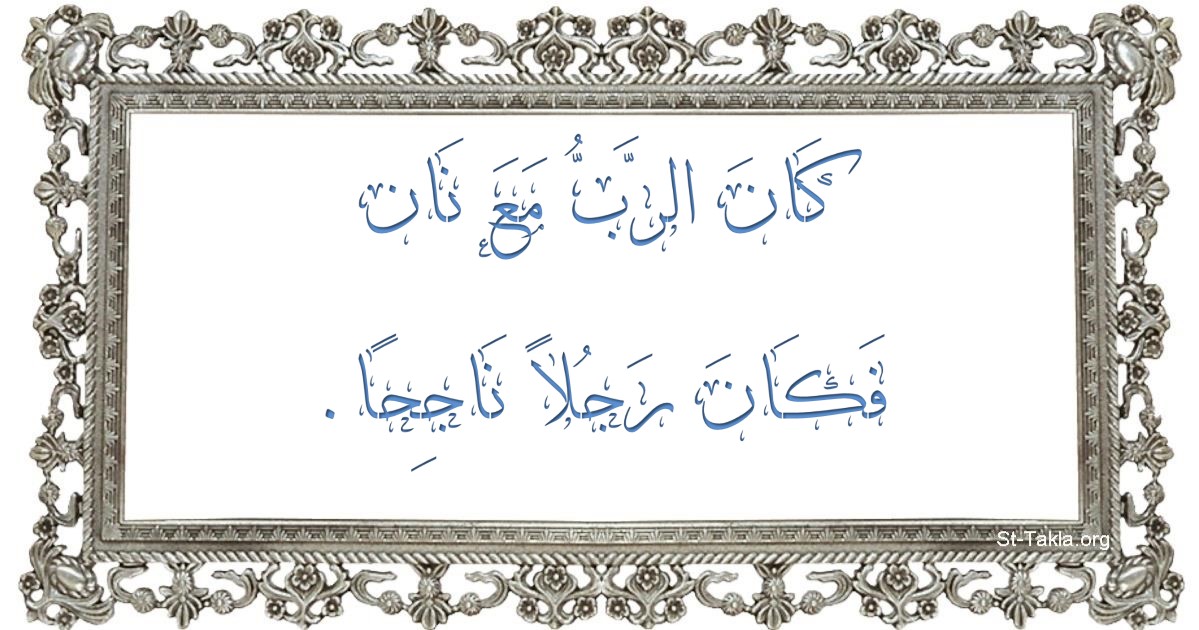 كَانَ الرَّبُّ مَعَ نَان
فَكَانَ رَجُلاً نَاجِحًا .
St-Takla.org